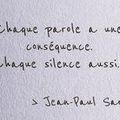 Chaque parole a une
conséquence.
Chaque silence aussi.
> Jean-Paul Sa